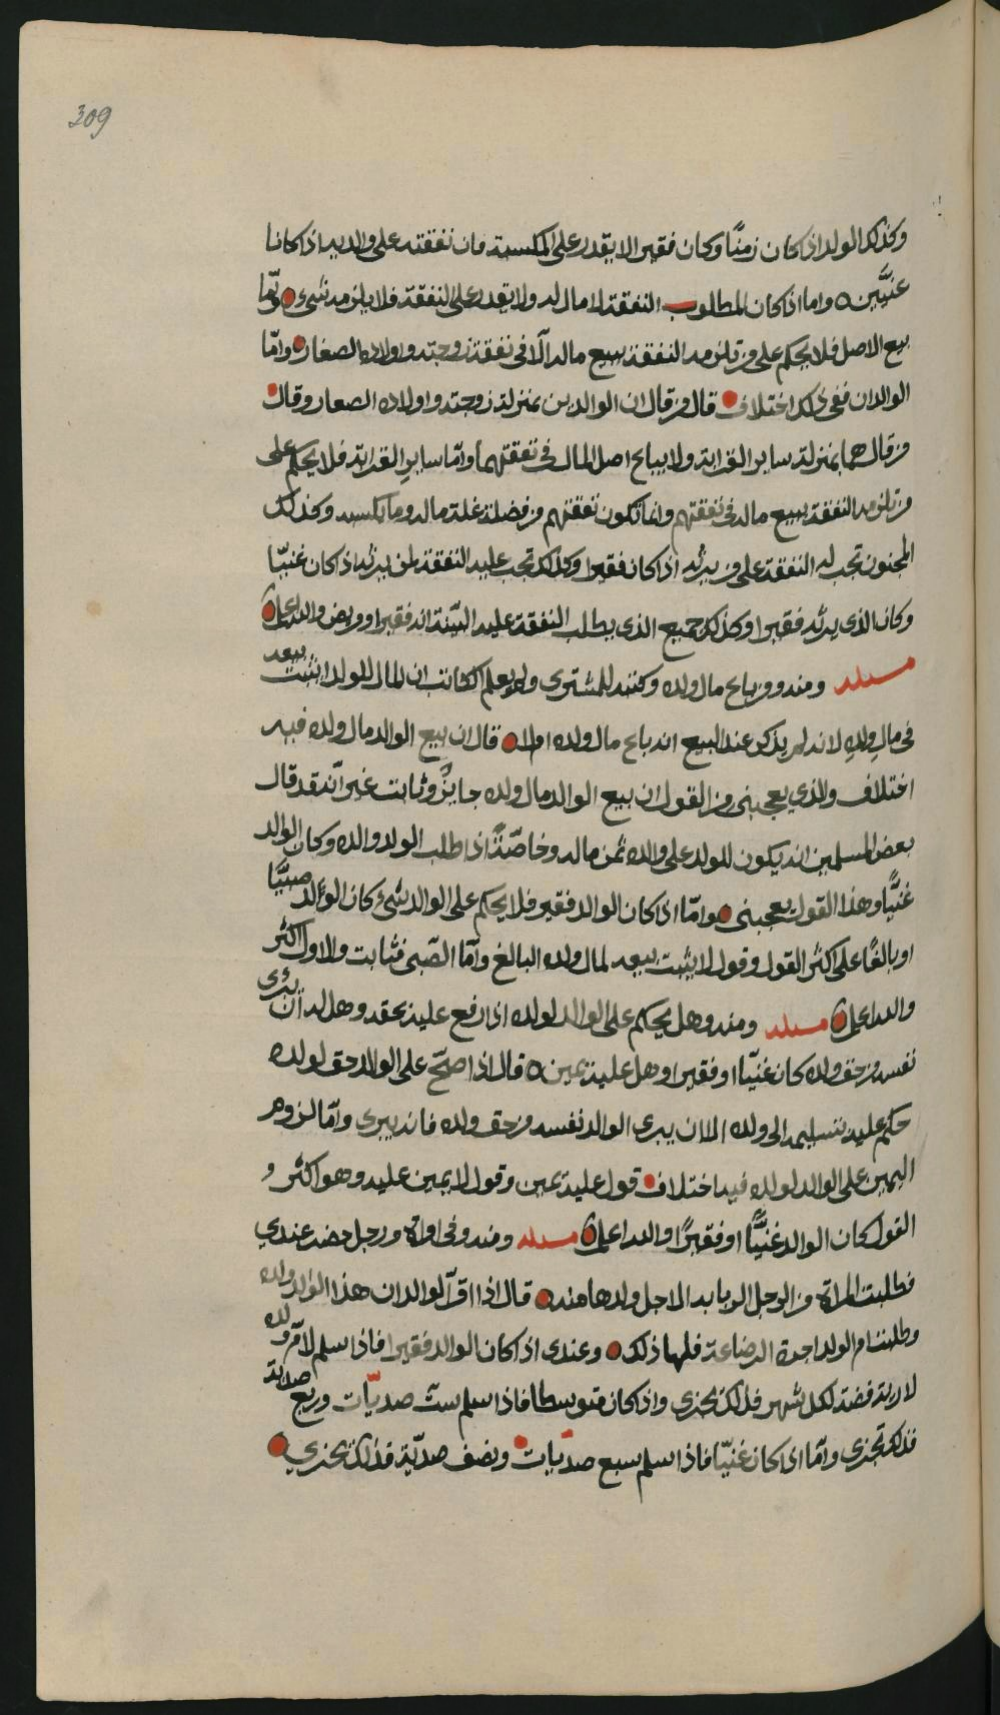 309
وكذلك الولد اذا كان زمنًا وكان فقيرا لا يقدر على المكسبة فان نفقته على والديه اذا كانا
غنيَّين ه واما اذا كان المطلوب النفقة لا مال له ولا يقدر على النفقة فلا يلزمه شيء وامّا
بيع الاصل فلا يحكم على من تلزمه النفقة ببيع ماله الّا في نفقة زوجته واولاده الصغار وامّا
الوالدان ففي ذلك اختلاف قال من قال ان الوالدين بمنزلة زوجته واولاده الصغار وقال
من قال هما بمنزلة ساير القرابة ولا يباع اصل المال في نفقتهما وامّا ساير القرابة فلا يحكم على
من تلزمه النفقة ببيع ماله في نفقتهم وانما تكون نفقتهم من فضلة غلة ماله وما يكسبه وكذلك
المجنون تجب له النفقة على من يرثه اذا كان فقيرا وكذلك تجب عليه النفقة لمن يرثه اذا كان غنيّا
وكان الذي يرثه فقيرا وكذلك جميع الذي يطلب النفقة عليه البيّنة انه فقير او مريض والله اعلم
مسئلة ومنه ومن باع مال ولده وكتبه للمشتري ولم يعلم الكاتب ان المال للولد ايثبت بيعه
في مال ولدهِ لانه لم يذكر عند البيع انه باع مال ولده ام لا قال ان بيع الوالد مال ولده فيه
اختلاف والذي يعجبني من القول ان بيع الوالد مال ولده جايزٌ وثابت غير انّه قد قال
بعض المسلمين انه يكون للولد على والده ثمن ماله وخاصّةً اذا طلب الولد والده وكان الوالد
غنيًّا وهذا القول يعجبني وامّا اذا كان الوالد فقير فلا يحكم على الوالد بشئ كان الولد صبيًّا
او بالغًا على اكثر القول وقول لا يثبت بيعه لمال ولده البالغ وامّا الصّبي فثابت والاول اكثر
والله اعلم مسئلة ومنه وهل يحكم على الوالد لولده اذا رفع عليه بحقه وهل له ان يبرى
نفسه من حق ولده كان غنيّا او فقيرا وهل عليه يمين ه قال اذا صحّ على الوالد حق لولده
حكم عليه بتسليمه الى ولده الا ان يبرى الوالد نفسه من حق ولده فانه يبرى وامّا لزوم
اليمين على الوالد لولده فيه اختلاف قول عليه يمين وقول لا يمين عليه وهو اكثر و
القول كان الوالد غنيًّا او فقيرًا والله اعلم مسئلة ومنه وفي امراة ورجل حضر عندي
فطلبت المراة من الرجل الربابه لاجل ولدها منه قال اذا اقرّ الوالد ان هذا الولد ولده
وطلبت ام الولد اجرة الرضاعة فلها ذلك وعندي اذا كان الوالد فقيرا فاذا سلم لام ولده
لارية فضة لكل شهر فذلك يجزي واذا كان متوسطا فاذا سلم ستّ صديّات وربع صدية
فذلك تجزي وامّا اذا كان غنيّا فاذا سلم سبع صديّات ونصف صديّة فذلك يجزي